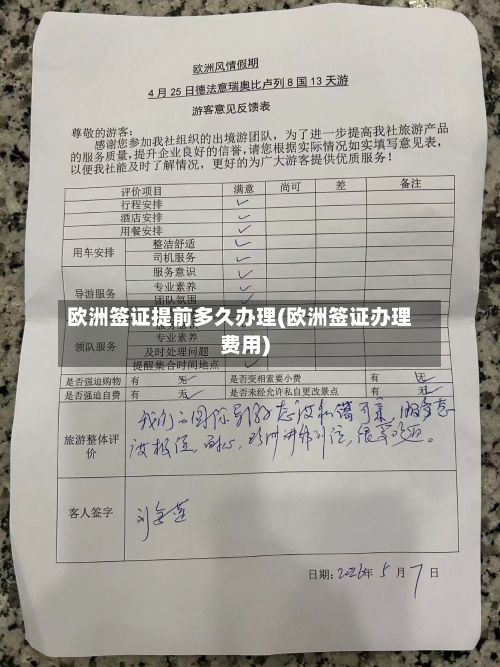 欧洲风情假期
4 月 25 日德法意瑞奥比卢列 8 国 13 天游
游客意见反馈表
尊敬的游客：
感谢您参加我社组织的出境游团队，为了进一步提高我社旅游产品
的服务质量,提升企业良好的信誉,请您根据实际情况如实填写意见表，
以便我社能及时了解情况，更好的为广大游客提供优质服务！
评价项目 满意 尚可 差 备注
行程安排 ✓
酒店安排 ✓
用餐安排 ✓
用车安排 整洁舒适 ✓
司机服务 ✓
导游服务 服务意识 ✓
专业素养 ✓
团队氛围
欧洲签证提前多久办理(欧洲签证办理
费用)
领队服务 专业素养
及时处理问题
提醒集合时间地点
是否强迫购物 有 无 是否变相索要小费 有 无
是否强迫自费 有 无 是否未经允许私自更改景点 有 无
旅游整体评
价
客人签字
日期: 2026年 5 月 7 日